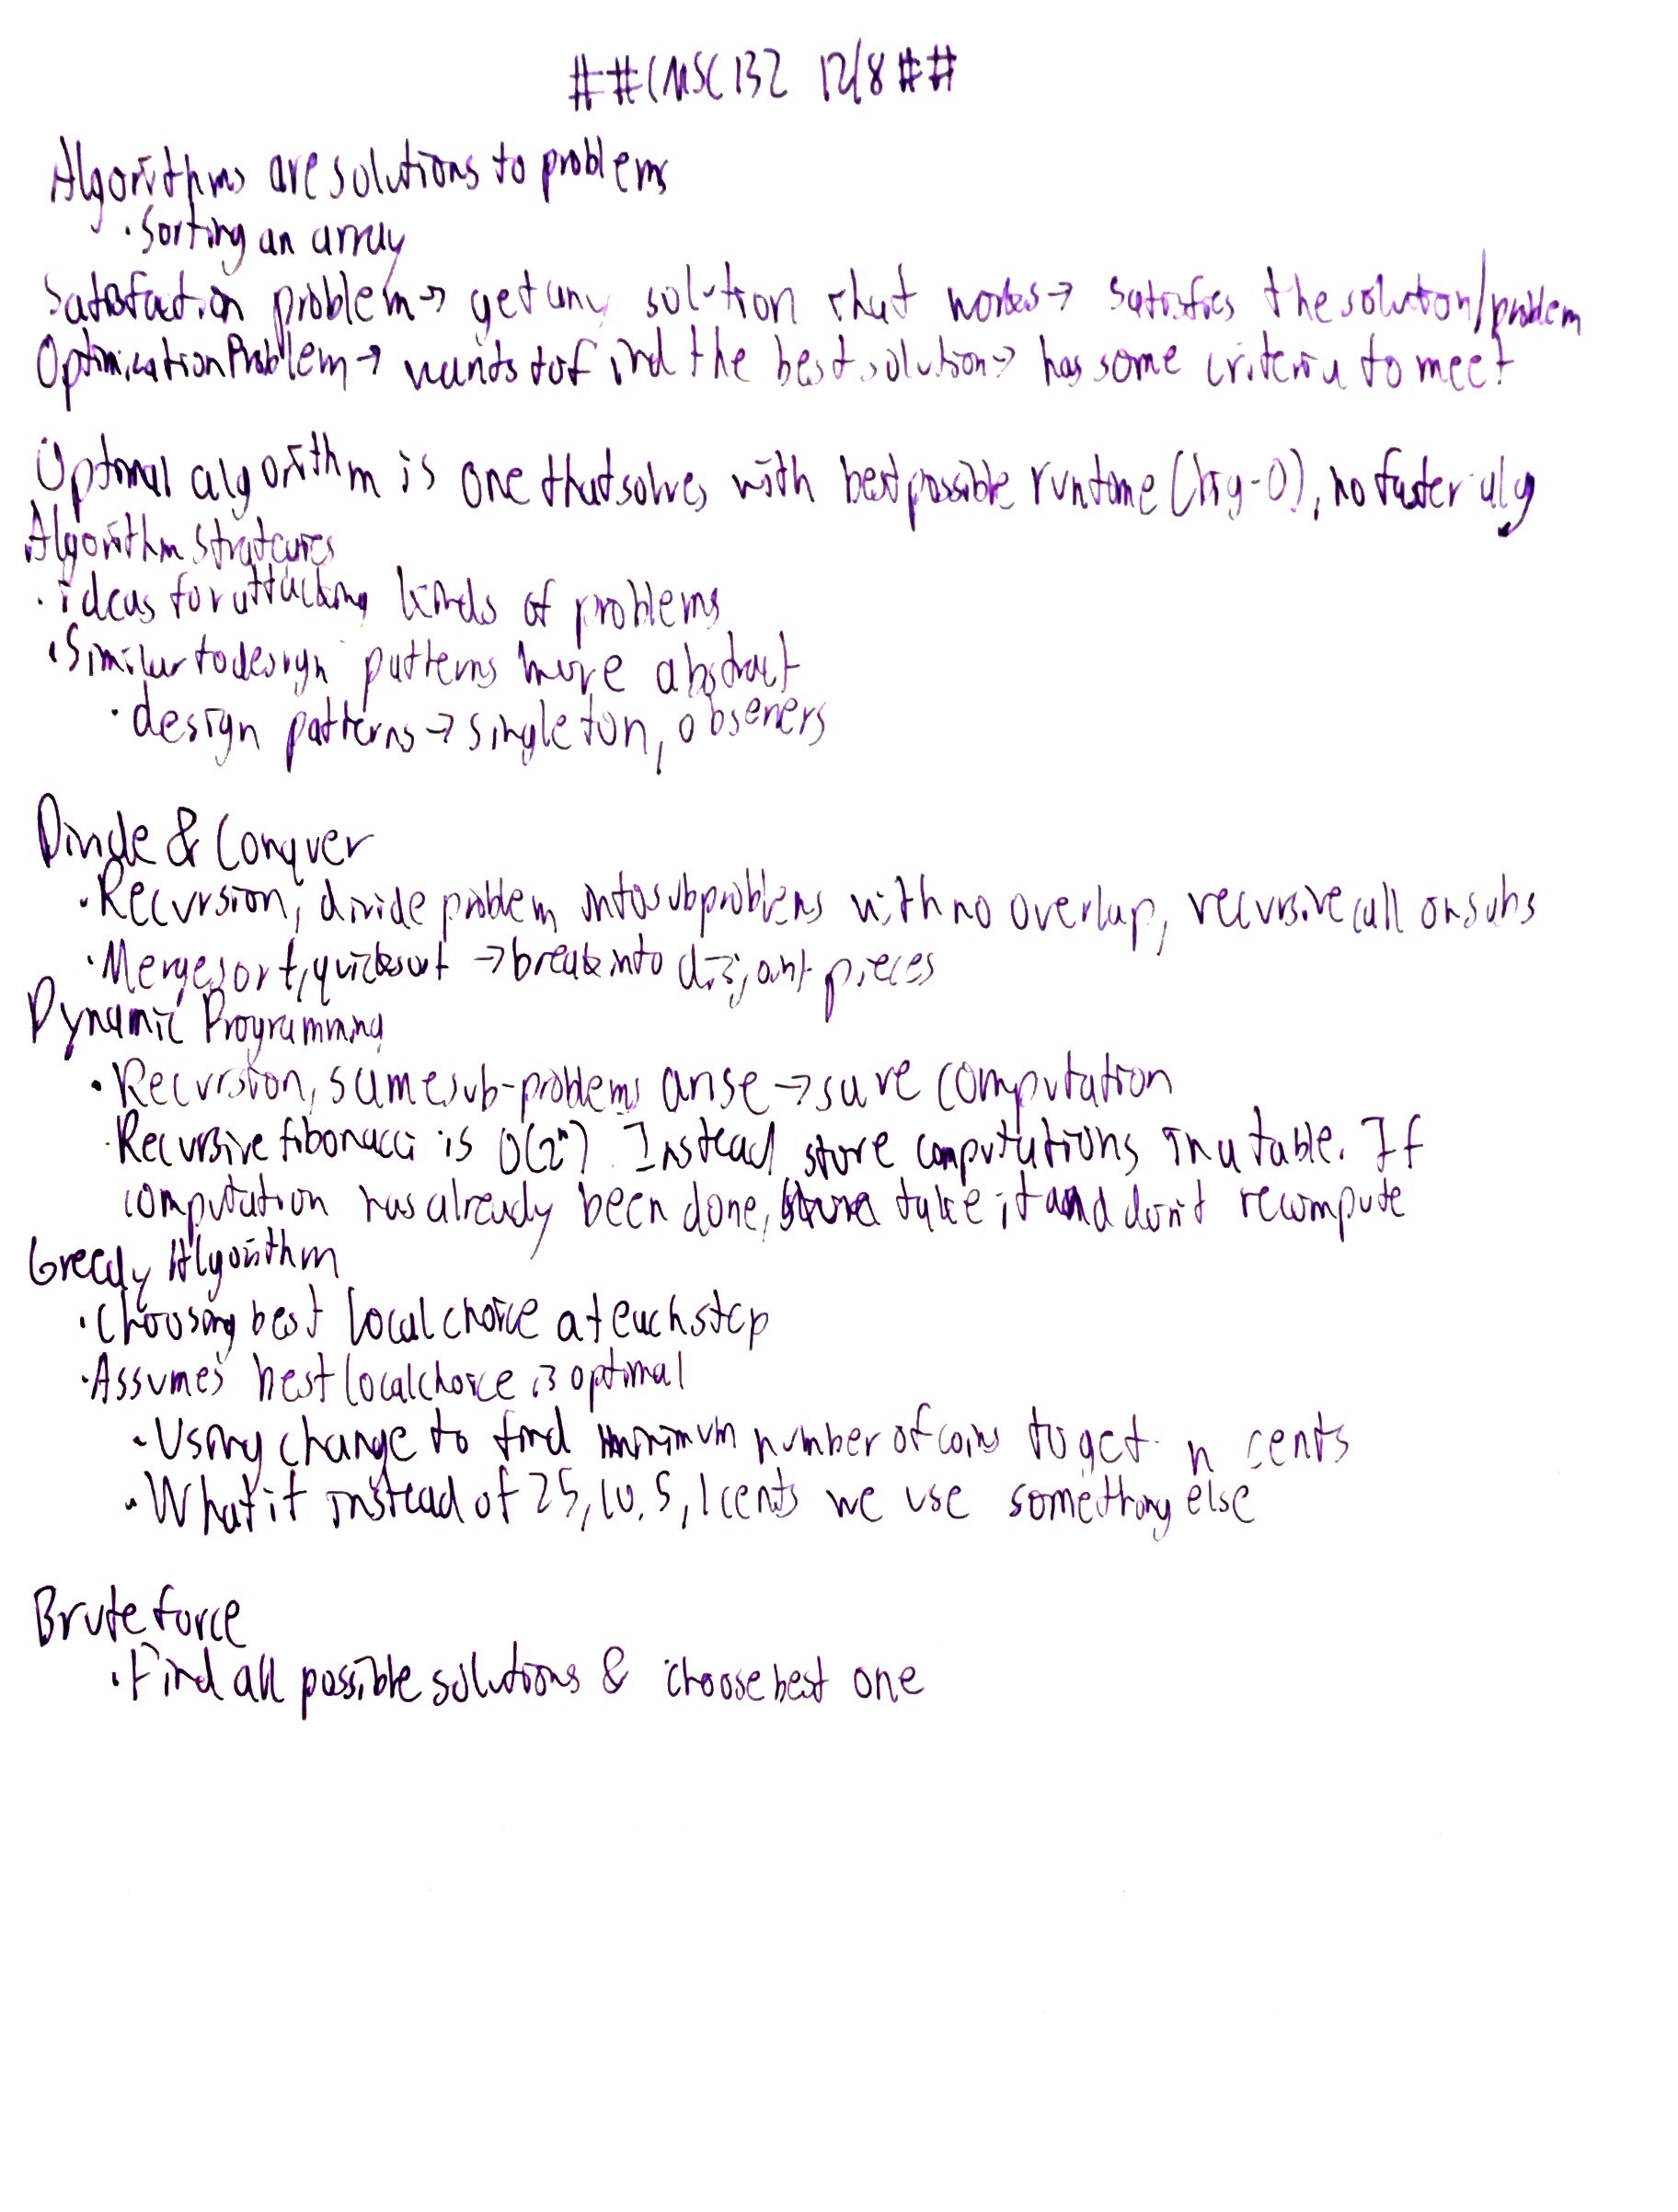 ##CMSC132 12/8##
Algorithms are solutions to problems
· Sorting an array
Satisfaction problem → get any solution that works → satisfies the solution/problem
Optimization Problem → wants to find the best solution → has some criteria to meet
Optimal algorithm is one that solves with best possible runtime (big-O), no faster alg
Algorithm Strategies
· ideas for attacking kinds of problems
· Similar to design patterns more abstract
· design patterns → singleton, observers
Divide & Conquer
· Recursion; divide problem into subproblems with no overlap, recursive call on subs
· Mergesort, quicksort → break into disjoint pieces
Dynamic Programming
· Recursion, same sub-problems arise → save computation
· Recursive fibonacci is O(2ⁿ). Instead store computations in a table. If
computation has already been done, take it and don't recompute
Greedy Algorithm
· Choosing best local choice at each step
· Assumes best local choice is optimal
· Using change to find minimum number of coins to get n cents
· What if instead of 25, 10, 5, 1 cents we use something else
Brute force
· Find all possible solutions & choose best one